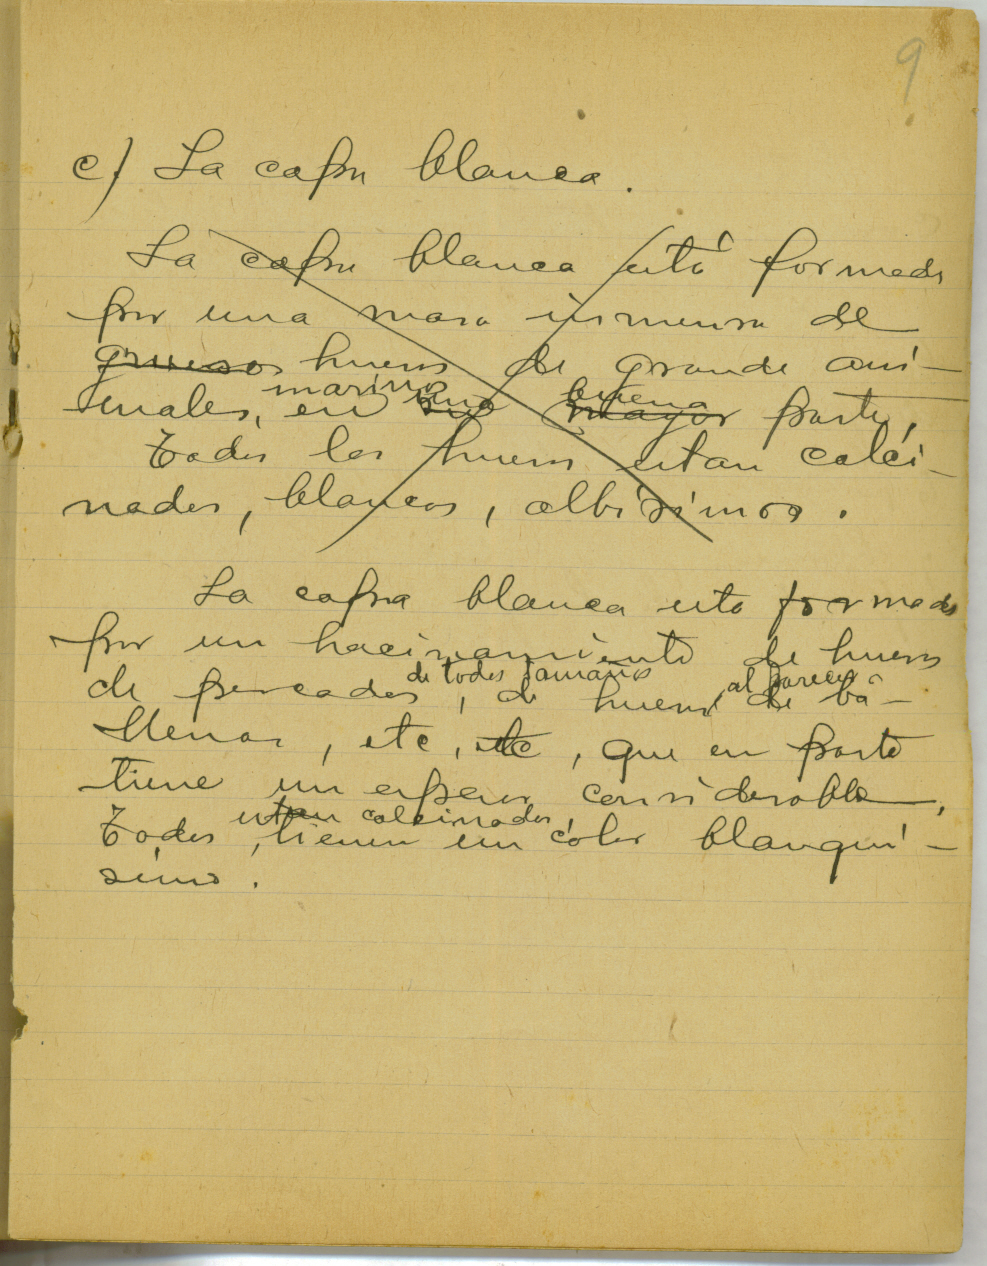 9
c) La capa blanca.
La capa blanca está formada
por una masa inmensa de
gruesos huesos de grande ani-
marinos buena
males, en una mayor parte,
Todos los huesos estan calci-
nados, blancos, albísimos.
La capa blanca esta formada
por un hacinamiento de huesos
de todos tamaños al parecer
de pescados, de huesos de ba-
llenas, etc, etc, que en parte
tiene un espesor considerable,
estan calcinados,
Todos, tienen un color blanqui-
simo.